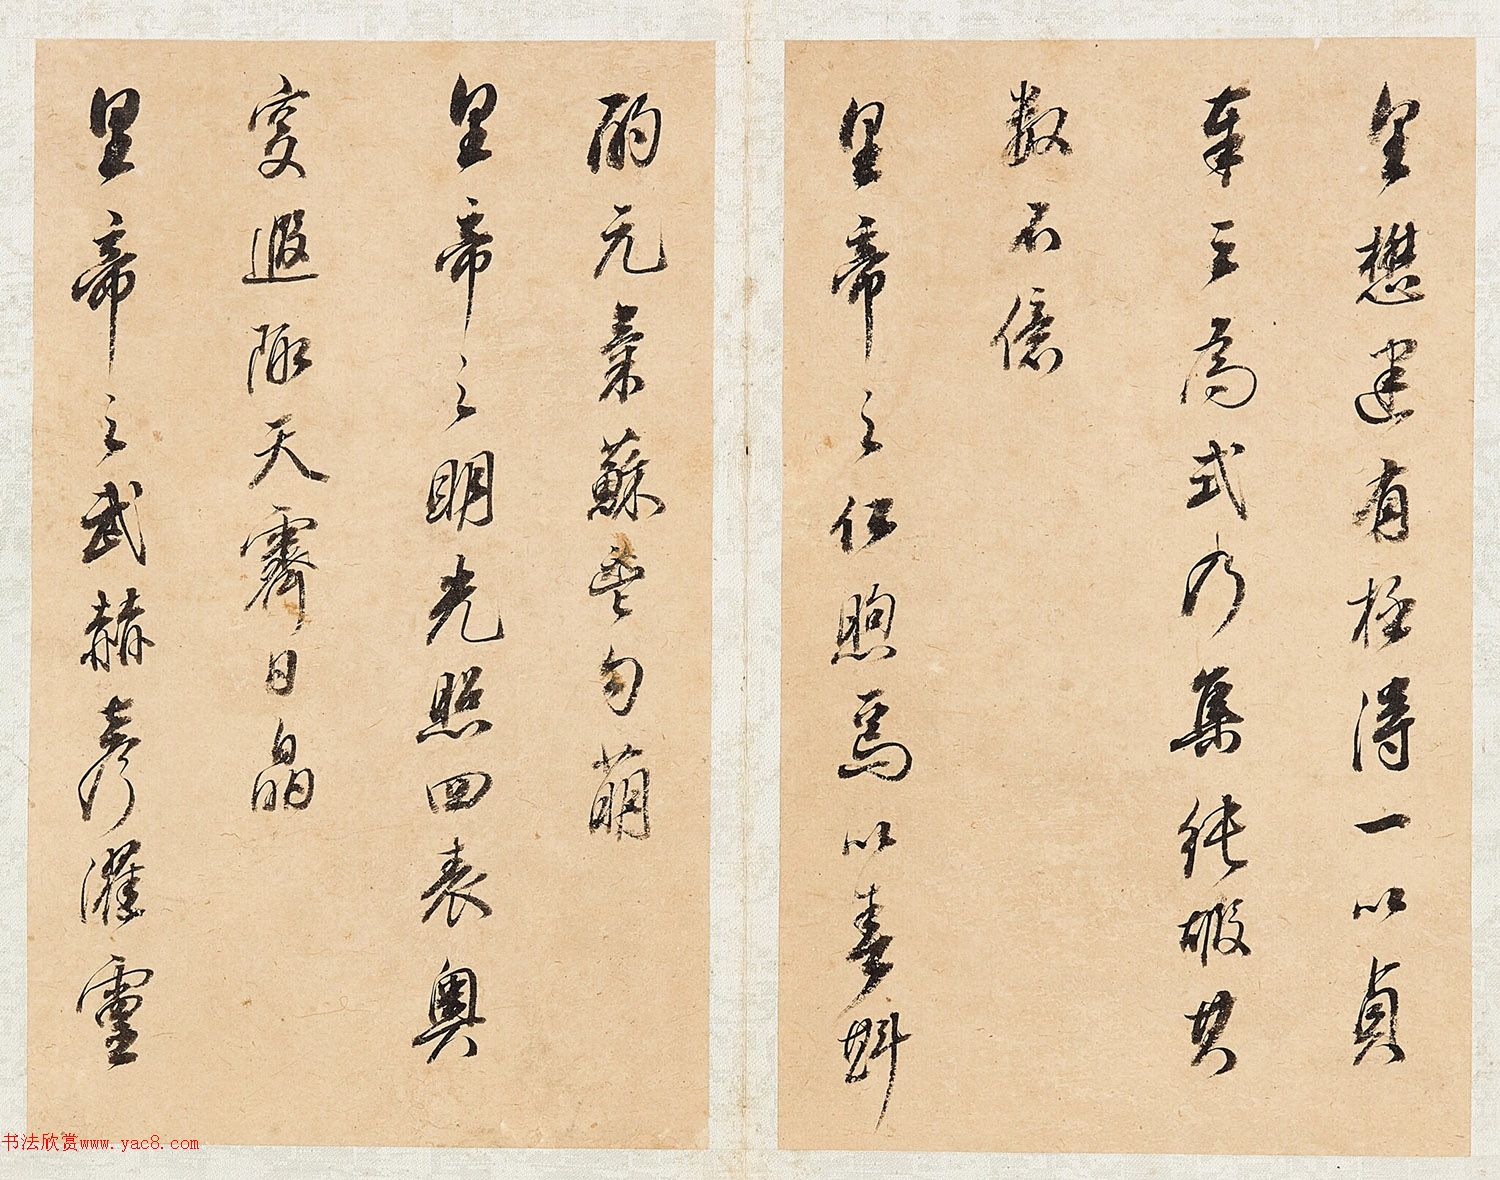 皇懋建有極得一以貞
奉三為式乃集純嘏其
數不億
皇帝之仁煦焉以春斟
酌元氣蘇壺勾萌
皇帝之明光照四表奧
窔遐陬天霽日晶
皇帝之武赫彥濯靈
书法欣赏www.yac8.com